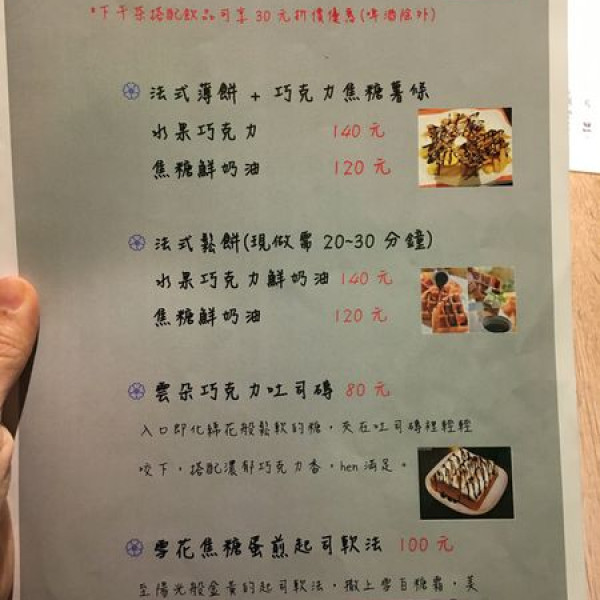 *下午茶搭配飲品可享30元折價優惠(啤酒除外)
法式薄餅 + 巧克力焦糖薯條
水果巧克力 140元
焦糖鮮奶油 120元
法式鬆餅(現做需20~30分鐘)
水果巧克力鮮奶油 140元
焦糖鮮奶油 120元
雲朵巧克力吐司磚 80元
入口即化綿花般鬆軟的糖，夾在吐司磚裡輕輕
咬下，搭配濃郁巧克力香，hen滿足。
雪花焦糖蛋煎起司軟法 100元
至陽光般金黃的起司軟法，撒上雪白糖霜，美